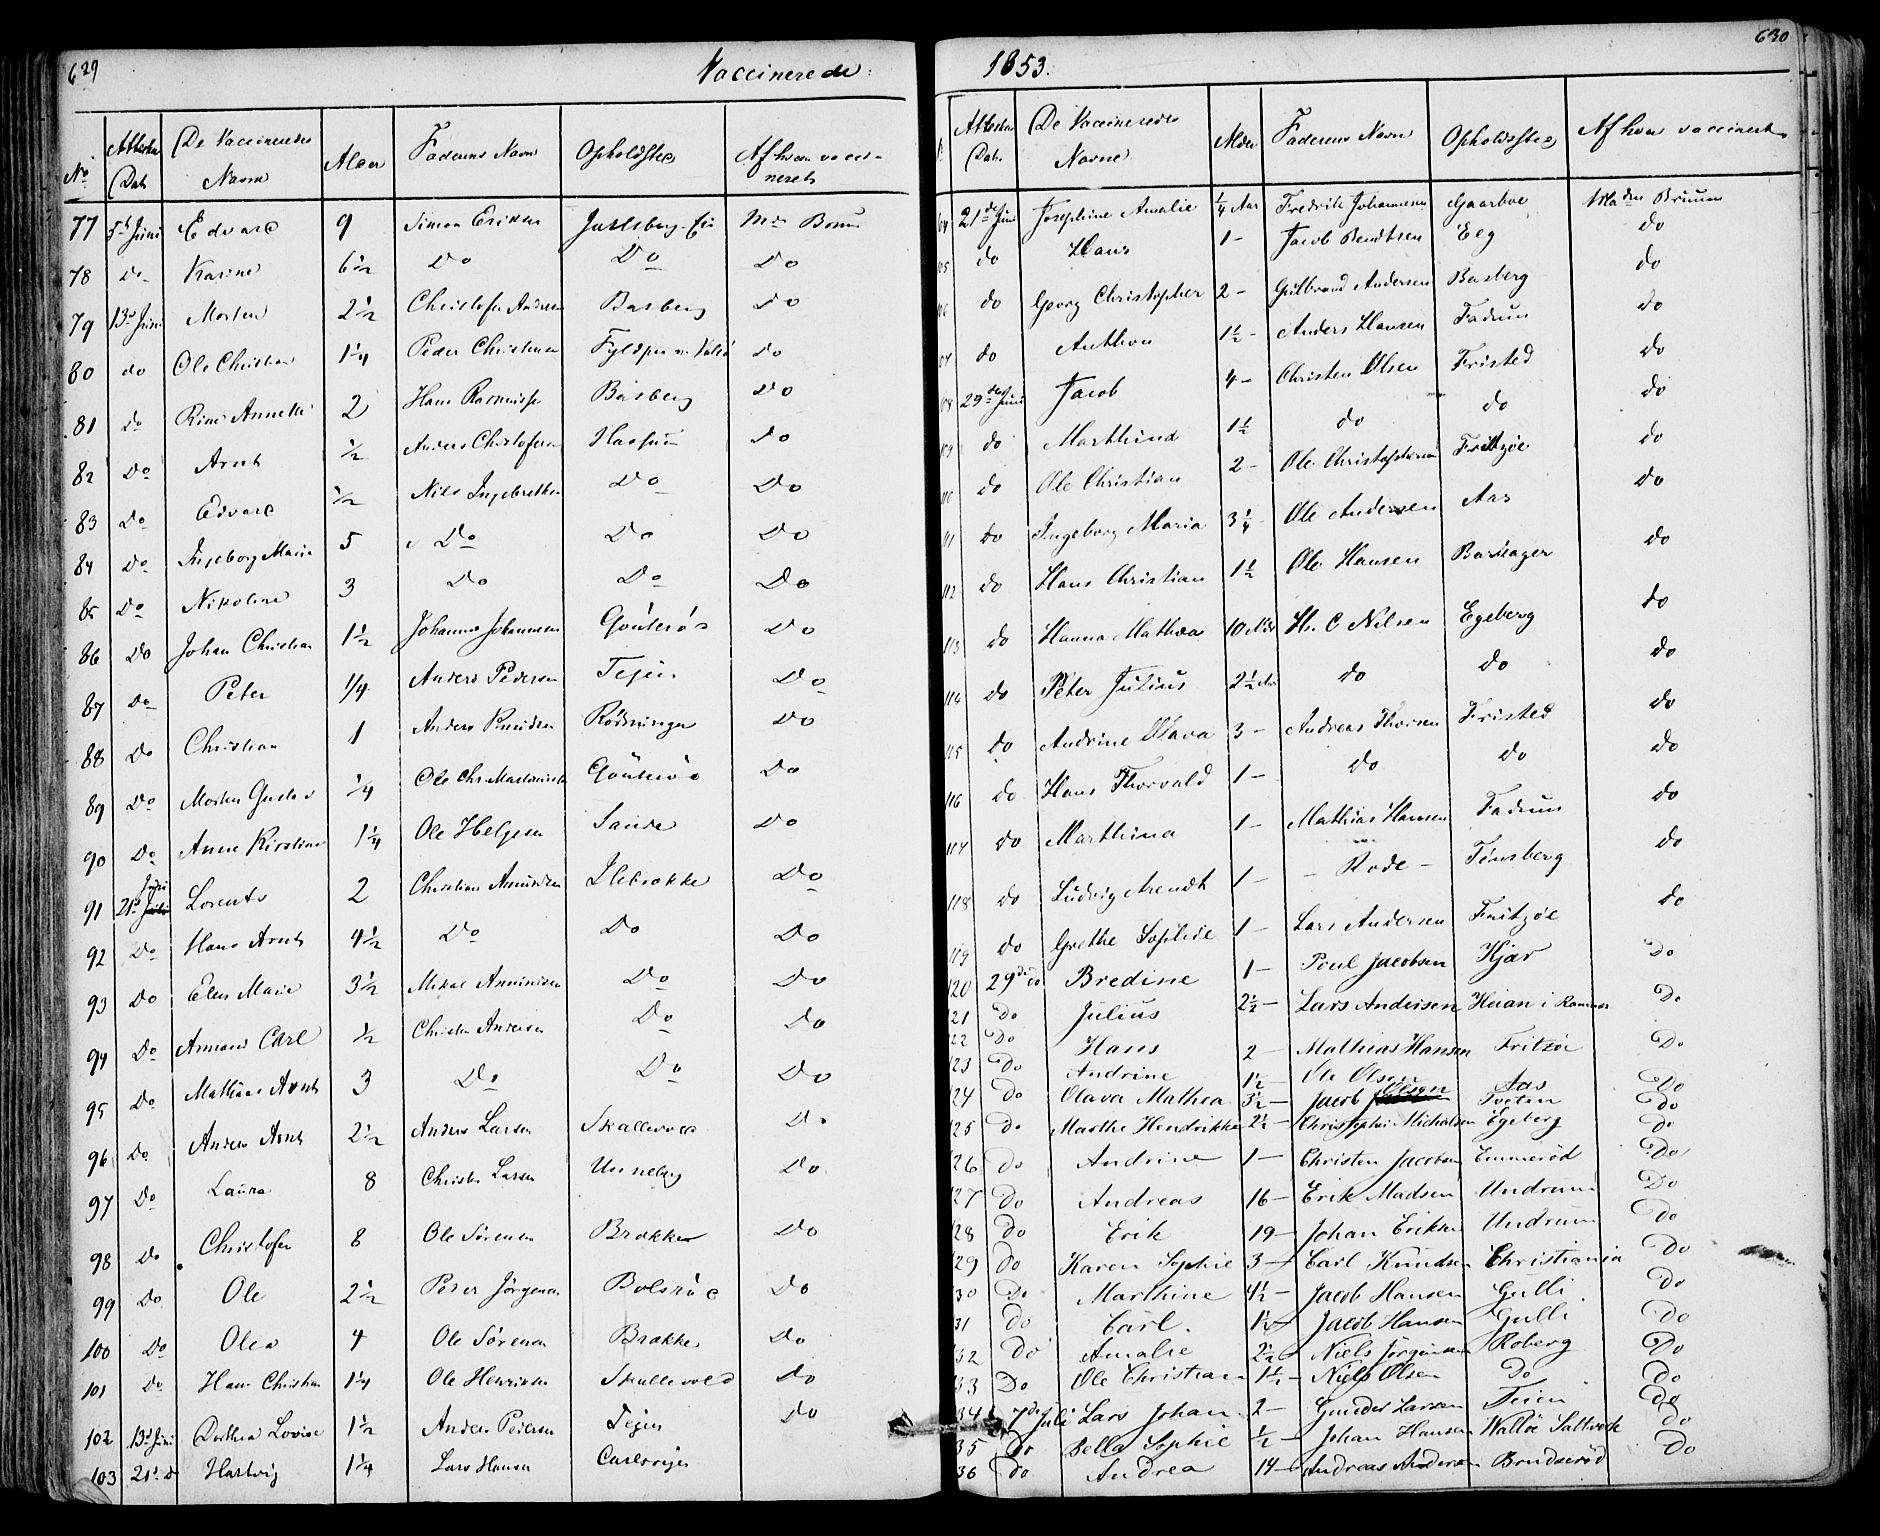 629
Vaccinerede
No. Attestens Dat. De Vaccineredes Navne Alder Faderens Navn Opholdsted Af hvem vaccineret
77 5te Juni Edvard 9 Simon Eriksen
78 Do Karine 6½ Do Do Do
79 13d Juni Morten 2½ Christofer Andersen Basberg Do
80 do Ole Christian 1¼ Peder Christensen do
81 do 2 Hans Rasmussen Basberg Do
82 Do Arnt ½ Anders Christofersen Do
83 Do Edvard ½ Nils Ingebretsen Do Do
84 Do Ingeborg Marie 5 Do Do Do
85 Do Nikoline 3 Do Do Do
86 Do Johan Christian 1½ Johannes Johannesen Do
87 Do Peter ¼ Anders Pedersen Do
88 Do Christian 1 Anders Knudsen Do
89 Do Morten Gustav ¼ Do
90 Do Anne Kirstine 1¼ Ole Helgesen Sande Do
91 21d Juni Lorents 2 Christian Amundsen Ilebrække Do
92 Do Hans Arnt 4½ Do Do Do
93 Do Elen Marie 3½ Mikal Amundsen Do Do
94 Do Carl ½ Christen Andersen Do Do
95 Do Mathias Arnt 3 Do Do Do
96 Do Anders Arnt 2½ Anders Larsen Skallevold Do
97 Do Laura 8 Christen Larsen Unneberg Do
98 Do Christofer 8 Ole Sørensen Brække Do
99 Do Ole 2½ Peder Jörgensen Do
100 Do Olea 4 Ole Sörensen Brække Do
101 Do Hans Christian 1¼ Ole Henriksen Skallevold Do
102 13d Juni Dorthea Lovise 1½ Anders Pedersen Tejen Do
103 21d Hartvig 1¼ Lars Hansen
1853.
630
Attestens Dat. De Vaccineredes Navne Alder Faderens Navn Opholdssted Af hvem vaccineret
04 21de Juni Josephine Amalie ¼ Aar Fredrik Johannesen Gaarboe Maden Bruun
05 do Hans 1 – Jacob Bendtsen Eeg do
06 do Georg Christopher 2 – Gulbrand Andersen Basberg do
07 do Anthon 1½ – Anders Hansen Fadum do
08 29de Juni Jacob 4 – Christen Olsen Fristed do
09 do Marthine 1½ do do do
110 do Ole Christian 2 – Ole Christophersen Fritzøe do
111 do Ingeborg Maria 3¼ – Ole Andersen Aas do
112 do Hans Christian 1½ Ole Hansen Barkager do
113 do Hanna Mathea 10 Mdr H. C Nilsen Egeberg do
114 do Peter Julius 2½ Aar do do do
115 do Andrine Olava 3 – Andreas Thorsen Fristed do
116 do Hans Thorvald 1 – do do do
117 do Marthina 1 – Mathias Hansen Fadum do
118 do Ludvig Arendt 1 – – Rode – Tønsberg do
119 do Grethe Sophie 1 – Lars Andersen Fritzøe do
120 29de do Bredine 1 – Poul Jacobsen Kjær Do
121 Do Julius 2½ – Lars Andersen Heian i Ramnes Do
122 Do Hans 2 – Mathias Hansen Fritzöe Do
123 Do Andrine 1½ – Ole Olsen Aas Do
124 Do Olava Mathea 3½ – Jacob Olsen Tveten Do
125 Do Marthe Hendrikke 2½ – Christopher Michelsen Egeberg Do
126 Do Andrine 1 – Christen Jacobsen Emmeröd Do
127 Do Andreas 16 – Erik Madsen Undrum Do
128 Do Erik 19 – Johan Eriksen Undrum Do
129 Do Karen Sophie 3 – Carl Knudsen Christiania Do
130 Do Marthine 4½ – Jacob Hansen Gulli Do
131 Do Carl. 1½ – Jacob Hansen Gulli Do
132 Do Amalie 2½ – Niels Jörgensen Roberg Do
133 Do Ole Christian 1½ – Niels Olsen Do Do
34 7de Juli Lars Johan 2 – Gunder Larsen Teien Do
35 Do Sophie ½ – Johan Hansen Walløe Saltværk Do
36 Do Andrea 14 – Andreas Andersen Brudseröd Do